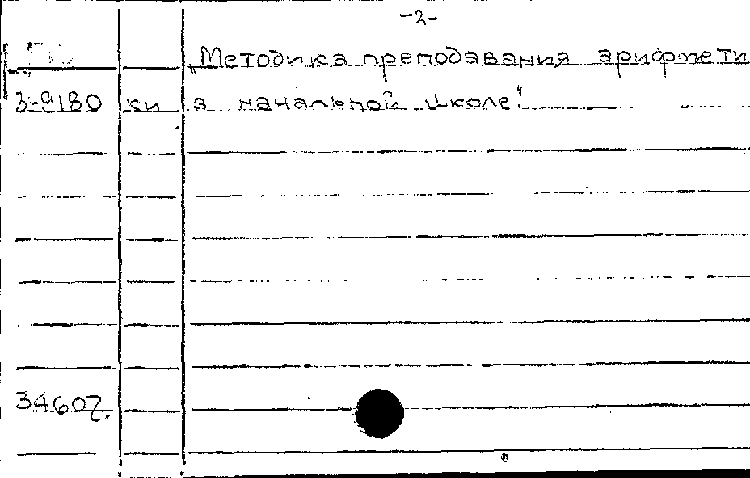 -2-
„Методика преподавания арифмети
3-9180 ки в начальной школе"
34607.